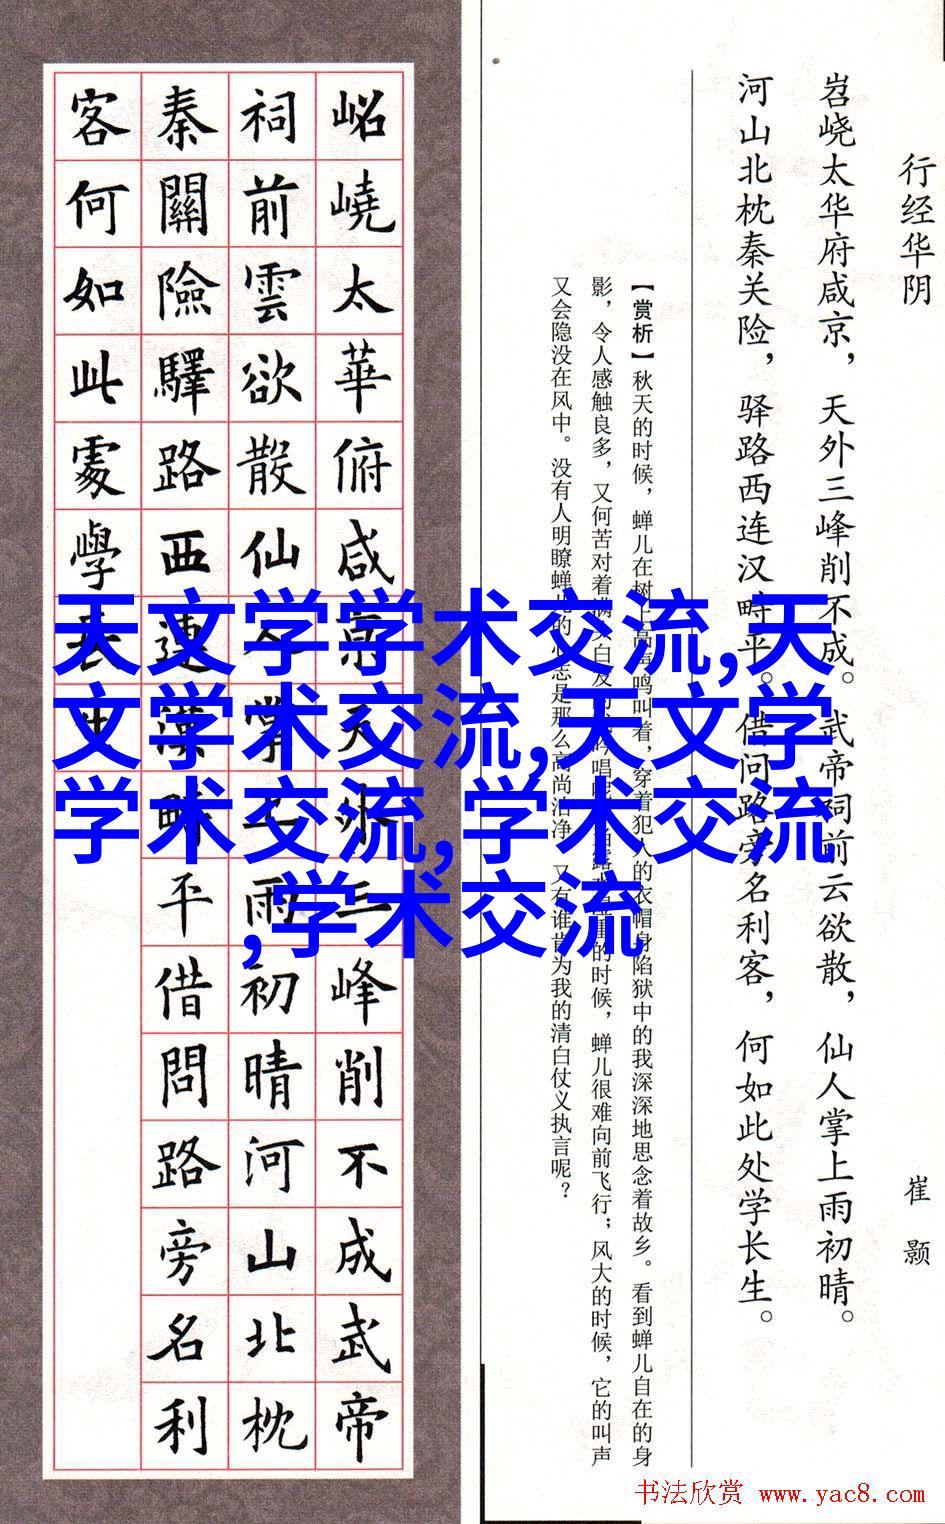 行经华阴 崔颢
岧峣太华府咸京，天外三峰削不成。武帝祠前云欲散，仙人掌上雨初晴。
河山北枕秦关险，驿路西连汉畤平。借问路旁名利客，何如此处学长生。
【赏析】秋天的时候，蝉儿在树上高声鸣叫着，穿着犯人的衣帽身陷狱中的我深深地思念着故乡。看到蝉儿自在的身
影，令人感触良多，又何苦对着满头白发的 吟唱 露水 重的时候，蝉儿很难向前飞行；风大的时候，它的叫声
又会隐没在风中。没有人明瞭蝉儿的心志是那么高尚洁净，又有谁肯为我的清白仗义执言呢？
岹嶢太華俯咸京天外三峰削不成武帝
祠前雲欲散仙人掌上雨初晴河山北枕
秦關險驛路西連漢畤平借問路旁名利
客何如此處學長生
天文学学术交流,天
文学术交流,天文学
学术交流,学术交流
,学术交流
书法欣赏 www.yac8.com